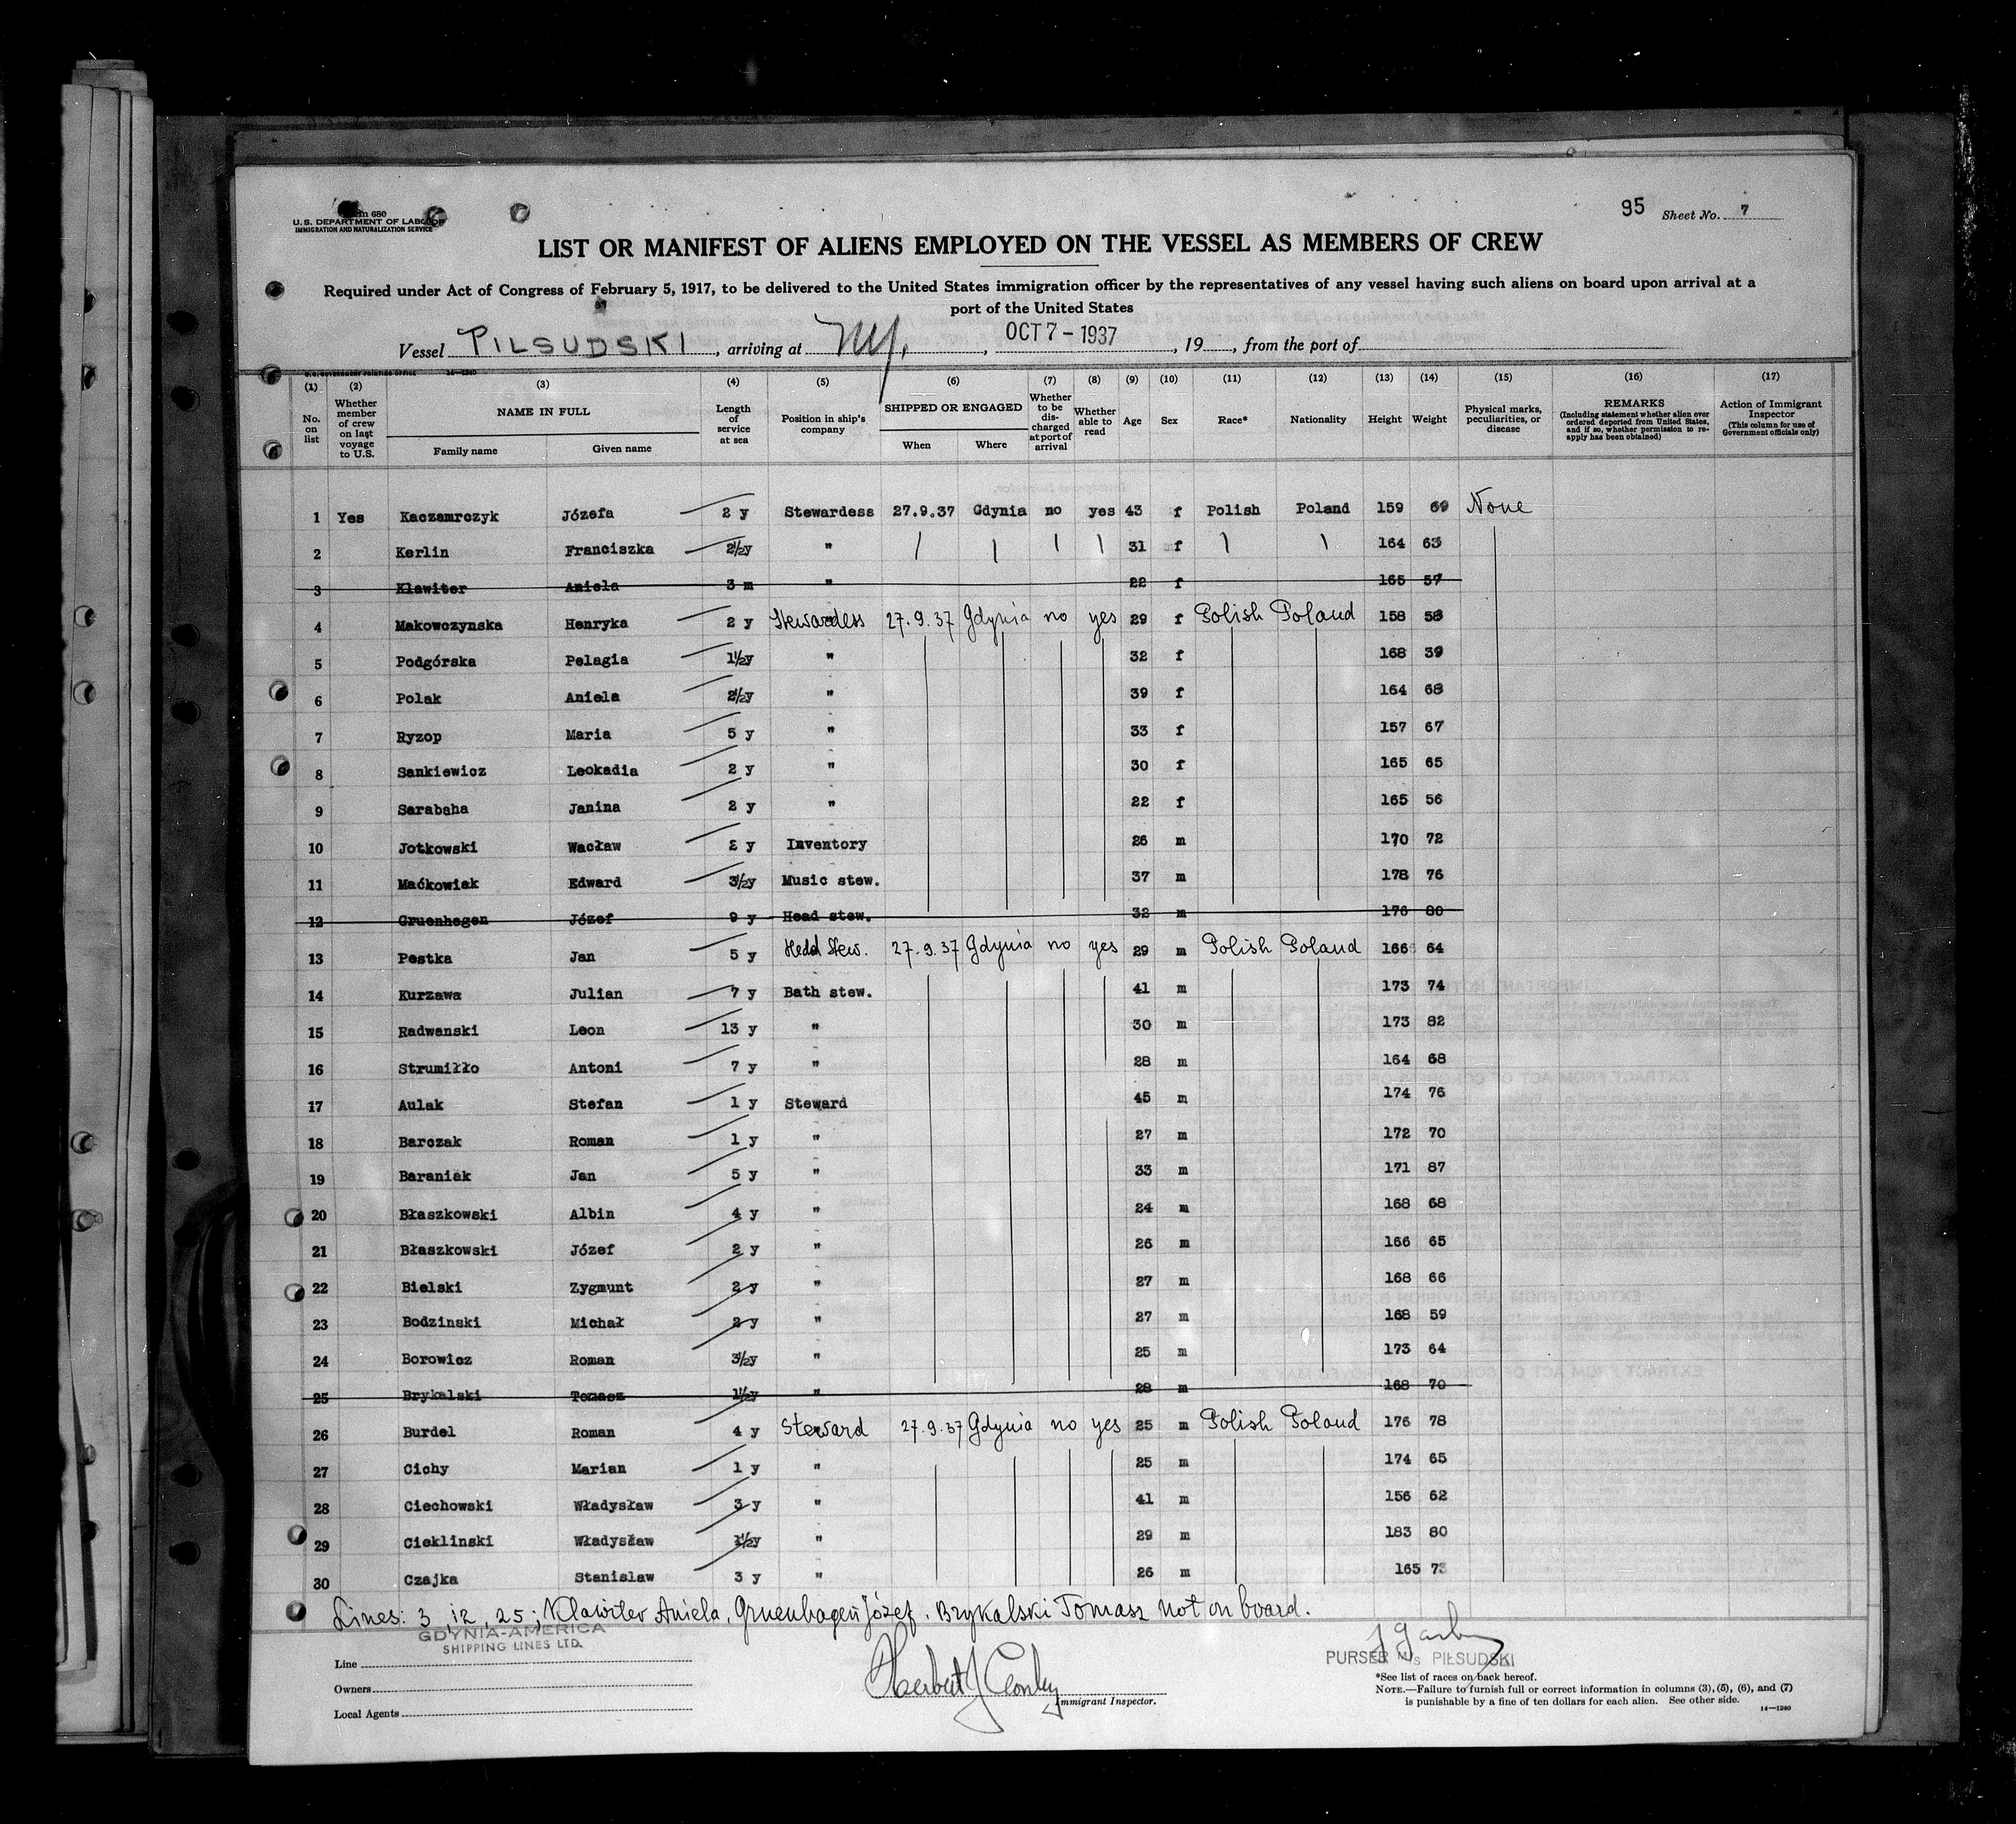 95 Sheet No. 7
U.S. DEPARTMENT OF LABOR
IMMIGRATION AND NATURALIZATION SERVICE
LIST OR MANIFEST OF ALIENS EMPLOYED ON THE VESSEL AS MEMBERS OF CREW
Required under Act of Congress of February 5, 1917, to be delivered to the United States immigration officer by the representatives of any vessel having such aliens on board upon arrival at a
port of the United States
Vessel PILSUDSKI, arriving at NY., OCT 7 - 1937, 19, from the port of
(1) (2) (3) (4) (5) (6) (7) (8) (9) (10) (11) (12) (13) (14) (15) (16) (17)
No. on list Whether member of crew on last voyage to U.S. NAME IN FULL Family name Given name Length of service at sea Position in ship's company SHIPPED OR ENGAGED When Where Whether to be discharged at port of arrival Whether able to read Age Sex Race* Nationality Height Weight Physical marks, peculiarities, or disease REMARKS (Including statement whether alien ever ordered deported from United States, and if so, whether permission to re-apply has been obtained) Action of Immigrant Inspector (This column for use of Government officials only)
1 Yes Kaczamrczyk Józefa 2 y Stewardess 27.9.37 Gdynia no yes 43 f Polish Poland 159 69 None
2 Kerlin Franciszka 2½y " 31 f 164 63
3 Klawiter Aniela 3 m " 22 f 165 57
4 Makowczynska Henryka 2 y Stewardess 27.9.37 Gdynia no yes 29 f Polish Poland 158 58
5 Podgórska Pelagia 1½y " 32 f 168 39
6 Polak Aniela 2½y " 39 f 164 68
7 Ryzop Maria 5 y " 33 f 157 67
8 Sankiewicz Leokadia 2 y " 30 f 165 65
9 Sarabaha Janina 2 y " 22 f 165 56
10 Jotkowski Wacław 2 y Inventory 26 m 170 72
11 Maćkowiak Edward 3½y Music stew. 37 m 178 76
12 Gruenhagen Józef 9 y Head stew. 32 m 176 80
13 Pestka Jan 5 y Head Stew. 27.9.37 Gdynia no yes 29 m Polish Poland 166 64
14 Kurzawa Julian 7 y Bath stew. 41 m 173 74
15 Radwanski Leon 13 y " 30 m 173 82
16 Strumiłło Antoni 7 y " 28 m 164 68
17 Aulak Stefan 1 y Steward 45 m 174 76
18 Barczak Roman 1 y " 27 m 172 70
19 Baraniak Jan 5 y " 33 m 171 87
20 Błaszkowski Albin 4 y " 24 m 168 68
21 Błaszkowski Józef 2 y " 26 m 166 65
22 Bielski Zygmunt 2 y " 27 m 168 66
23 Bodzinski Michał 2 y " 27 m 168 59
24 Borowicz Roman 3½y " 25 m 173 64
25 Brykalski Tomasz 1½y " 28 m 168 70
26 Burdel Roman 4 y Steward 27.9.37 Gdynia no yes 25 m Polish Poland 176 78
27 Cichy Marian 1 y " 25 m 174 65
28 Ciechowski Władysław 3 y " 41 m 156 62
29 Cieklinski Władysław 1½y " 29 m 183 80
30 Czajka Stanislaw 3 y " 26 m 165 73
Lines: 3, 12, 25; Klawiter Aniela, Gruenhagen Józef. Brykalski Tomasz not on board.
GDYNIA-AMERICA
SHIPPING LINES LTD.
Line
Owners
Local Agents
Immigrant Inspector.
PURSER M/s PIŁSUDSKI
*See list of races on back hereof.
NOTE.—Failure to furnish full or correct information in columns (3), (5), (6), and (7)
is punishable by a fine of ten dollars for each alien. See other side.
14—1240